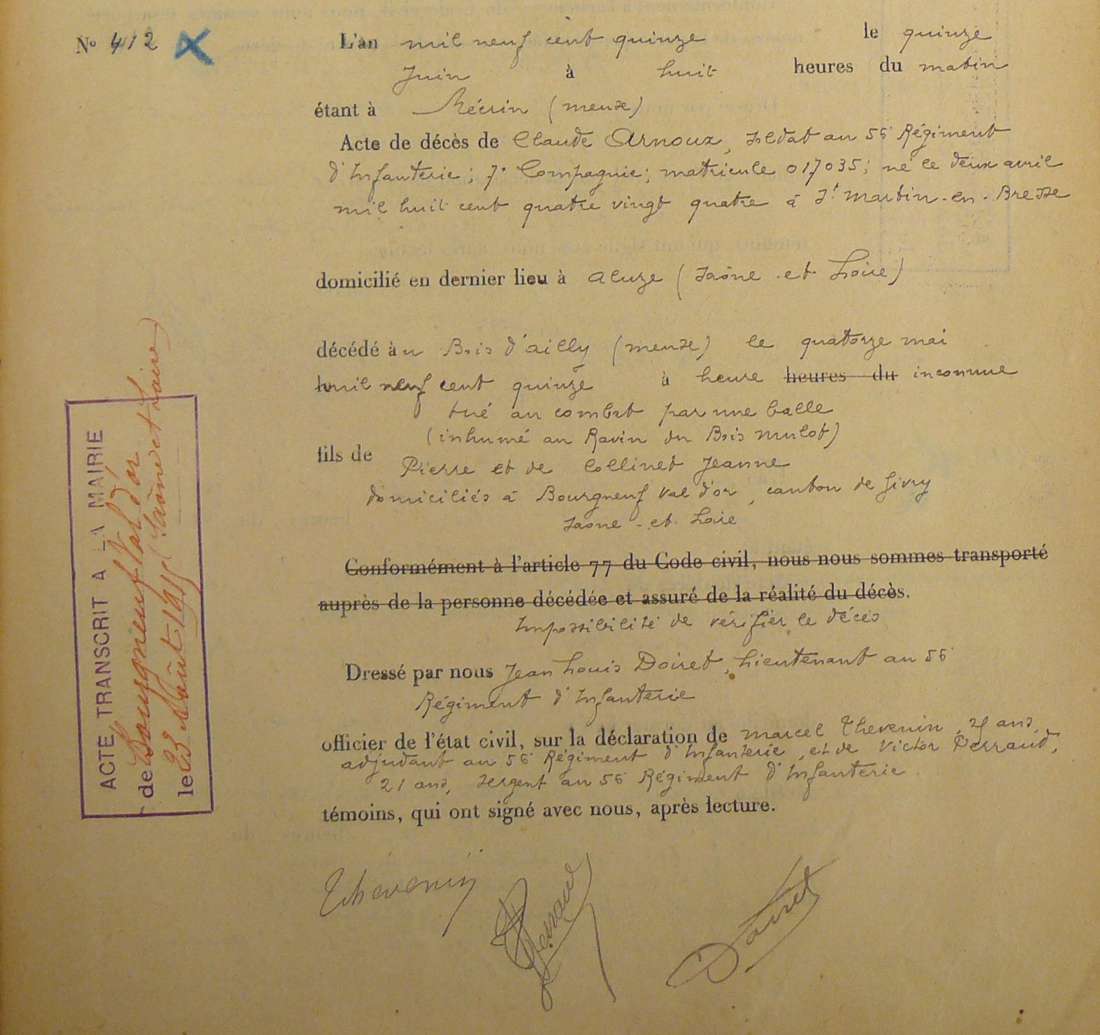 No 412 X
L'an mil neuf cent quinze le quinze
Juin à huit heures du matin
étant à Mécrin (meuse)
Acte de décès de Claude Arnoux, soldat au 56 Régiment
d'Infanterie; 7e Compagnie; matricule 017035; né le deux avril
mil huit cent quatre vingt quatre à St Martin-en-Bresse
domicilié en dernier lieu à Aluze (Saône-et-Loire)
décédé au Bois d'ailly (meuse) le quatorze mai
mil neuf cent quinze à heure heures du inconnue
tué au combat par une balle
(inhumé au Ravin du Bois mulot)
fils de Pierre et de Collinet Jeanne
domiciliés à Bourgneuf Val d'or, canton de Givry
Saône-et-Loire
Conformément à l'article 77 du Code civil, nous nous sommes transporté
auprès de la personne décédée et assuré de la réalité du décès.
Impossibilité de vérifier le décès
Dressé par nous Jean Louis Doiret, Lieutenant au 56
Régiment d'Infanterie
officier de l'état civil, sur la déclaration de marcel Thevenin, ans,
adjudant au 56 Régiment d'Infanterie, et de Victor Perraud,
21 ans, sergent au 56 Régiment d'Infanterie
témoins, qui ont signé avec nous, après lecture.
Thévenin Perraud Doiret
ACTE TRANSCRIT A LA MAIRIE
de Bourgneuf Val d'or (Saône et Loire)
le 23 Août 1915